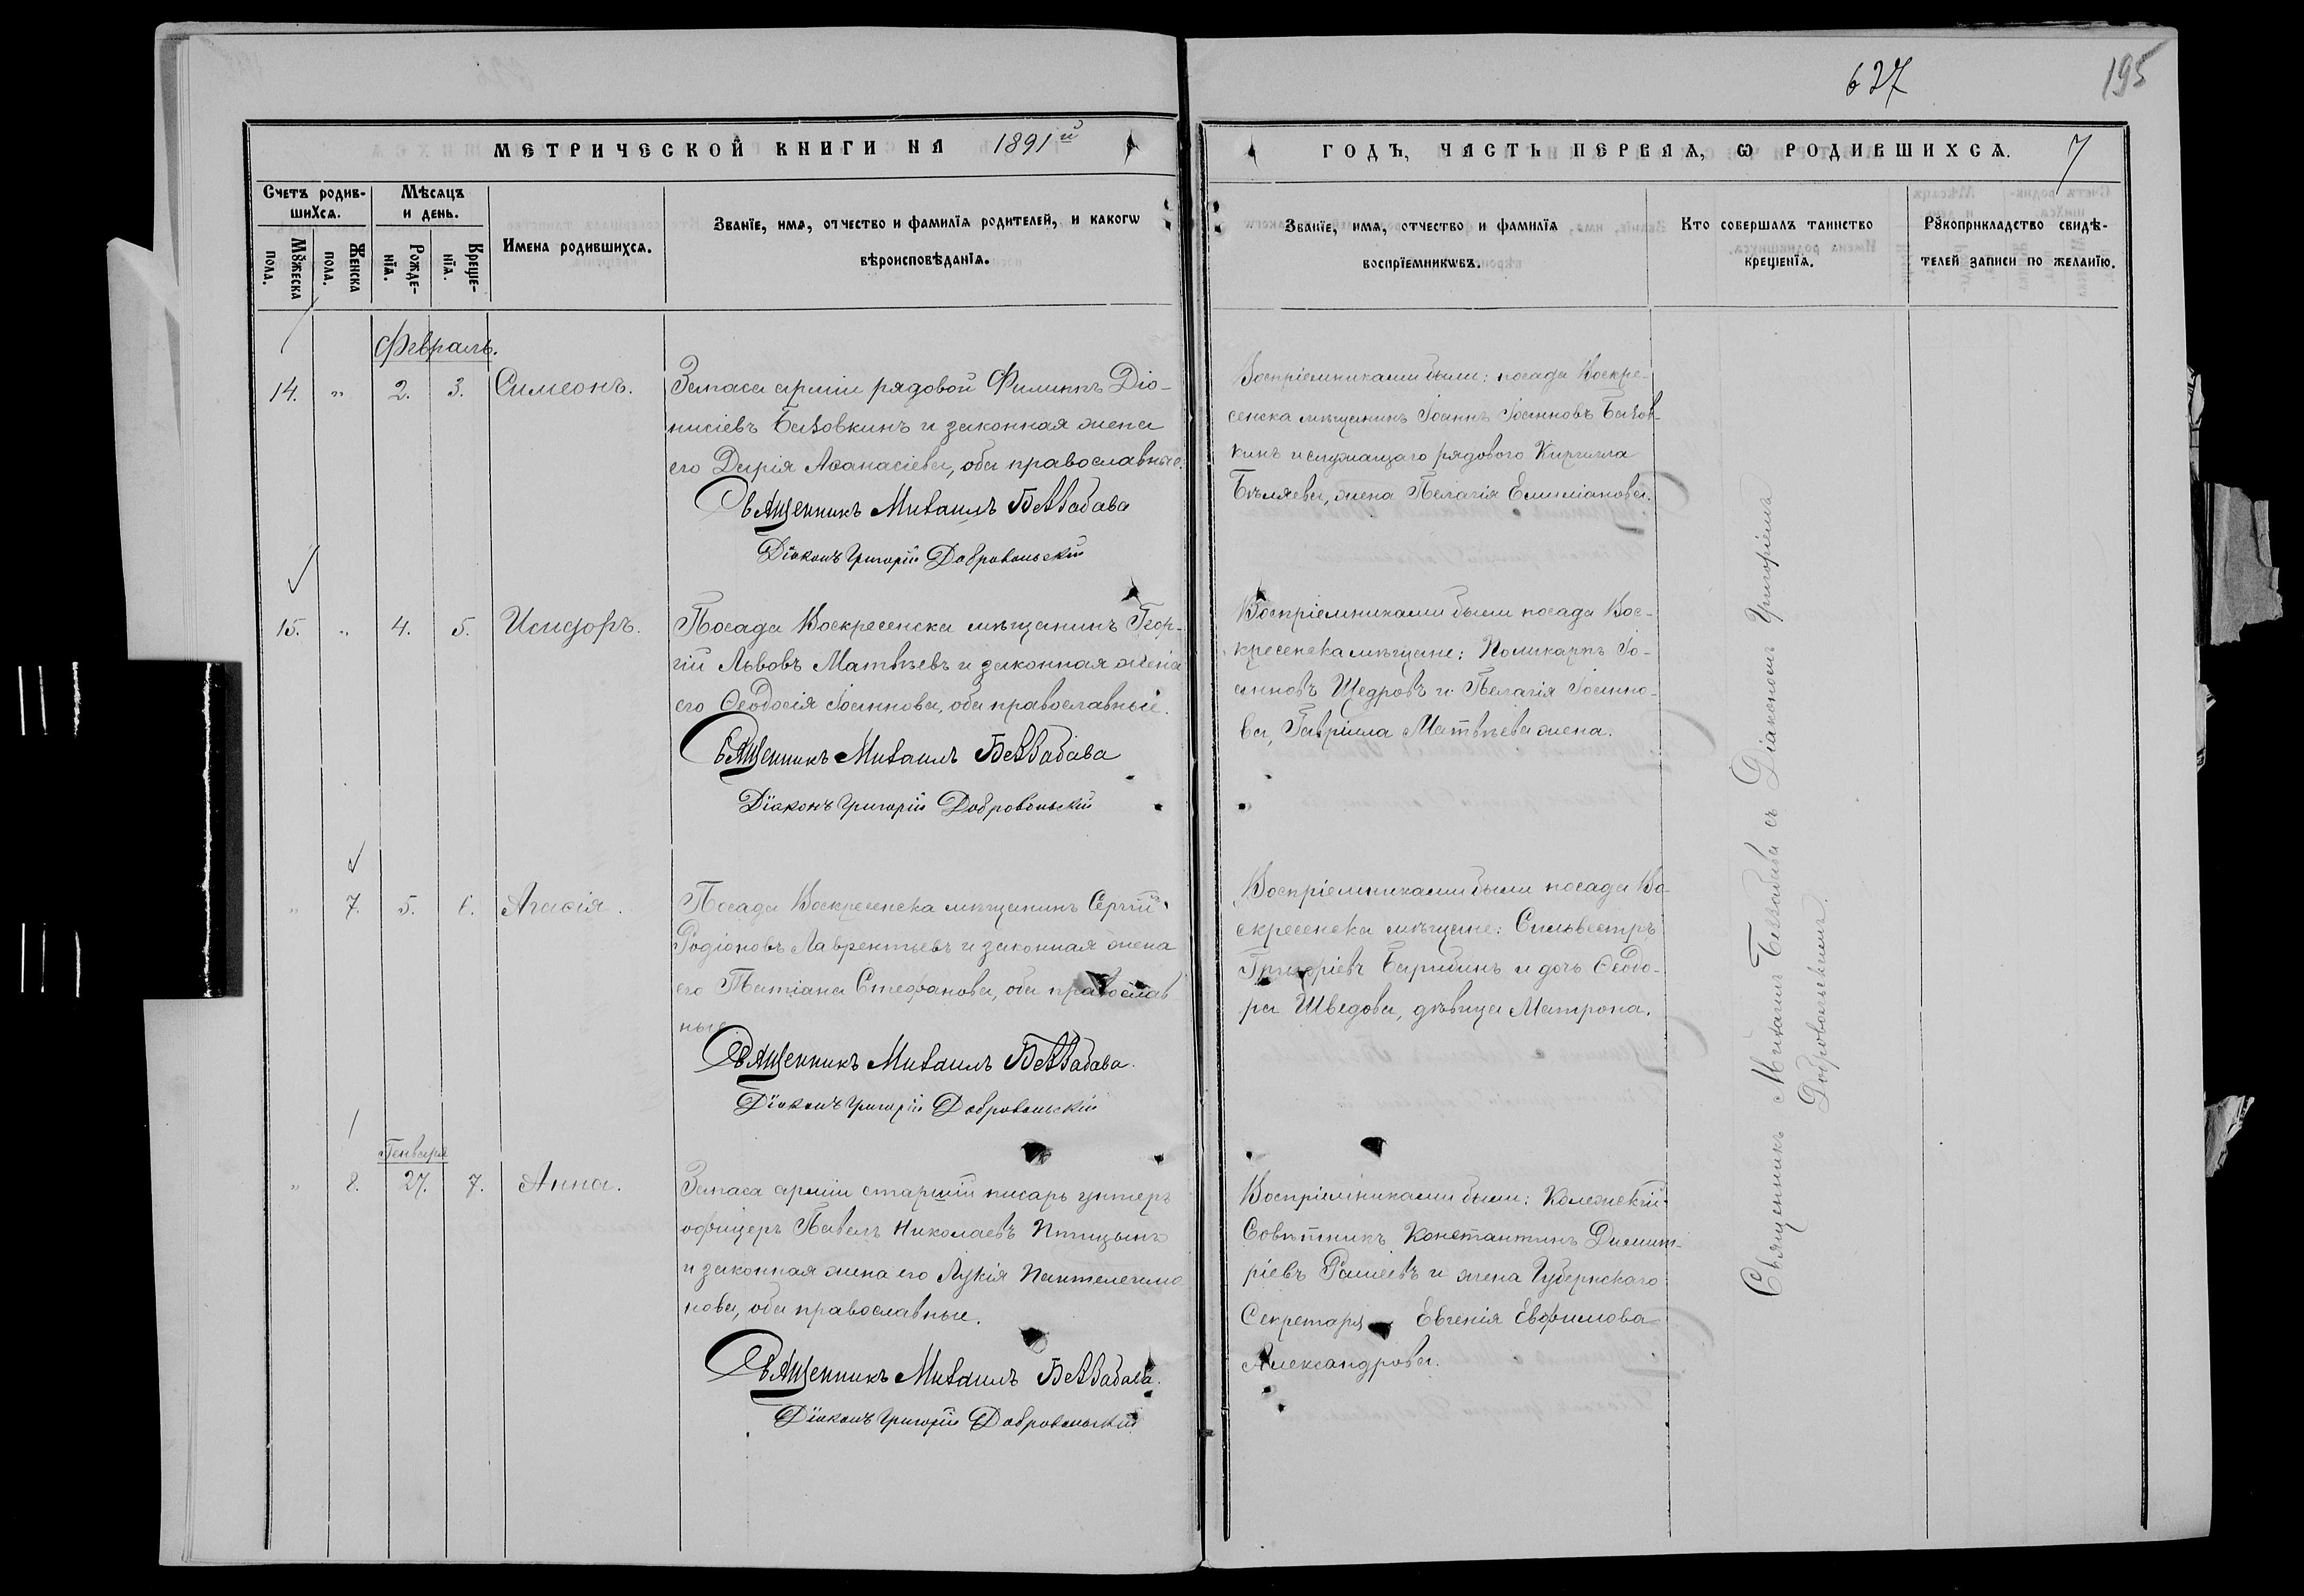 627
195
МЕТРИЧЕСКОЙ КНИГИ НА 1891й
ГОДЪ, ЧАСТЬ ПЕРВАЯ, Ѡ РОДИВШИХСѦ. 7
Счетъ родив-
шихсѧ.
Мꙋжеска
пола.
Женска
пола.
Мѣсѧцъ
и день.
Рожде-
нїѧ.
Креще-
нїѧ.
Имена родившихсѧ.
Званїе, имѧ, отчество и фамилїѧ родителей, и какогѡ
вѣроисповѣданїѧ.
Званїе, имѧ, отчество и фамилїѧ
воспрїемникѡвъ.
Кто совершалъ таинство
крещенїѧ.
Рꙋкоприкладство свидѣ-
телей записи по желанїю.
Февраль.
14. " 2. 3. Симеонъ.
Запаса арміи рядовой Филиппъ Діо-
нисіевъ Баховкинъ и законная жена
его Дарія Аѳанасіева, оба православные.
Священникъ Михаилъ Беззабава
Діаконъ Григорій Добровольскій
Воспріемниками были: посада Воскре-
сенска мѣщанинъ Іоаннъ Іоанновъ Бахов-
кинъ и служащаго рядового Кирилла
Бѣляева, жена Пелагія Емиліанова.
15. " 4. 5. Исидоръ.
Посада Воскресенска мѣщанинъ Геор-
гій Львовъ Матвѣевъ и законная жена
его Ѳеодосія Іоаннова, оба православные.
Священникъ Михаилъ Беззабава
Діаконъ Григорій Добровольскій
Воспріемниками были посада Вос-
кресенска мѣщане: Поликарпъ Іо-
анновъ Щедровъ и Пелагія Іоанно-
ва, Гавріила Матвѣева жена.
" 7. 5. 6. Агаѳія.
Посада Воскресенска мѣщанинъ Сергій
Родіоновъ Лаврентьевъ и законная жена
его Татіана Стефанова, оба православ
ные.
Священникъ Михаилъ Беззабава.
Діаконъ Григорій Добровольскій
Воспріемниками были посада Во-
скресенска мѣщане: Сильвестръ
Григоріевъ Барибинъ и дочь Ѳеодо-
ра Шведова, дѣвица Матрона.
Генваря
" 8. 27. 7. Анна.
Запаса арміи старшій писарь унтеръ
офицеръ Павелъ Николаевъ Птицынъ
и законная жена его Лукія Пантелеимо
нова, оба православные.
Священникъ Михаилъ Беззабава.
Діаконъ Григорій Добровольскій
Воспріемниками были: Колежскій
Совѣтникъ Константинъ Димит-
ріевъ и жена Губернскаго
Секретаря Евгенія Евфимова
Александрова.
Священникъ Михаилъ Беззабава съ Діакономъ Григоріемъ
Добровольскимъ.